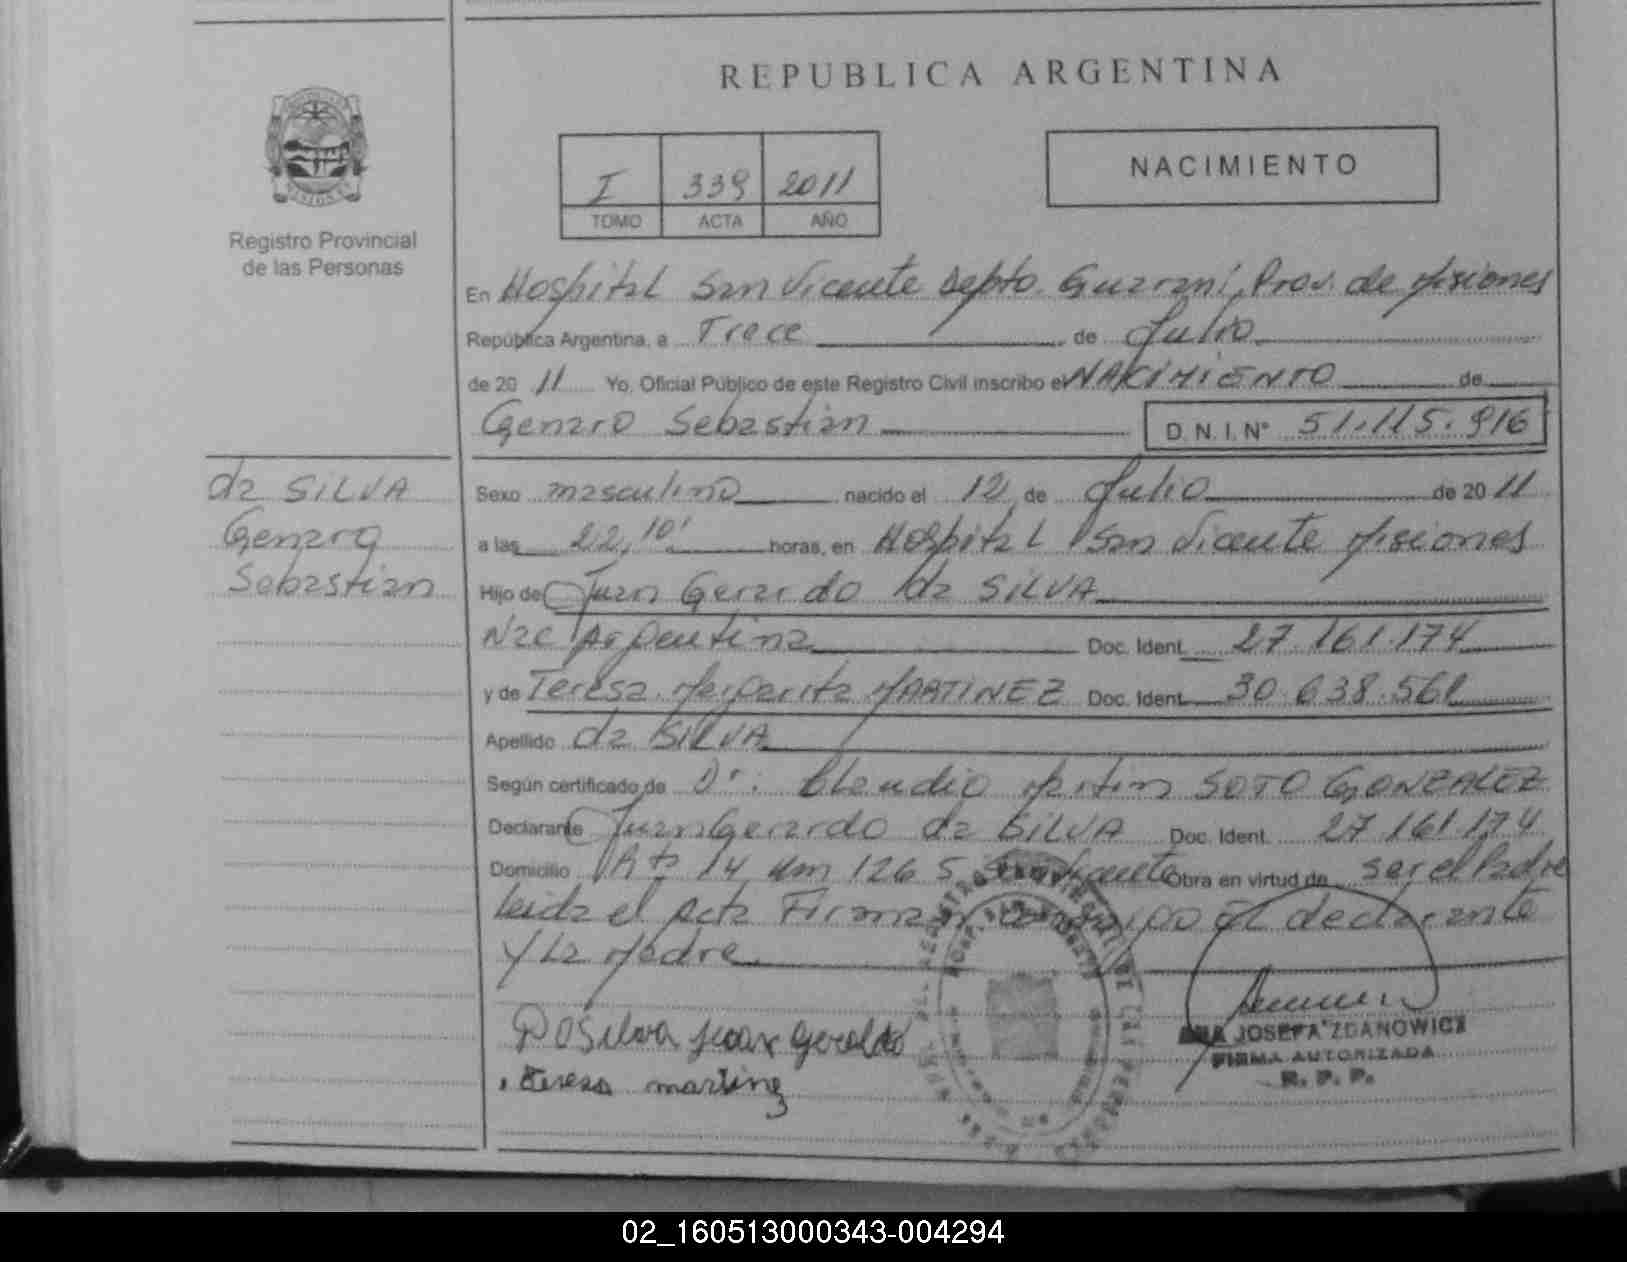 REPUBLICA ARGENTINA
I 339 2011
TOMO ACTA AÑO
NACIMIENTO
Registro Provincial
de las Personas
En Hospital San Vicente Depto. Guaraní, Prov. de Misiones
República Argentina, a Trece de Julio
de 2011 Yo, Oficial Público de este Registro Civil inscribo el NACIMIENTO de
Genaro Sebastian D.N.I. Nº 51.115.916
da SILVA
Genaro
Sebastian
Sexo masculino nacido el 12 de Julio de 2011
a las 22,10' horas, en Hospital San Vicente Misiones
Hijo de Juan Gerardo da SILVA
Nac Argentina Doc. Ident. 27.161.174
y de Teresa Margarita MARTINEZ Doc. Ident. 30.638.561
Apellido da SILVA
Según certificado de Dr: Claudio Martin SOTO GONZALEZ
Declarante Juan Gerardo da SILVA Doc. Ident. 27.161.174
Domicilio Rta 14 Km 126 San Vicente Obra en virtud de ser el Padre
leida el Acta Firman conmigo el declarante
y La Madre
Da Silva Juan Geraldo
teresa martinez
ANA JOSEFA ZDANOWICZ
FIRMA AUTORIZADA
R. P. P.
02_160513000343-004294